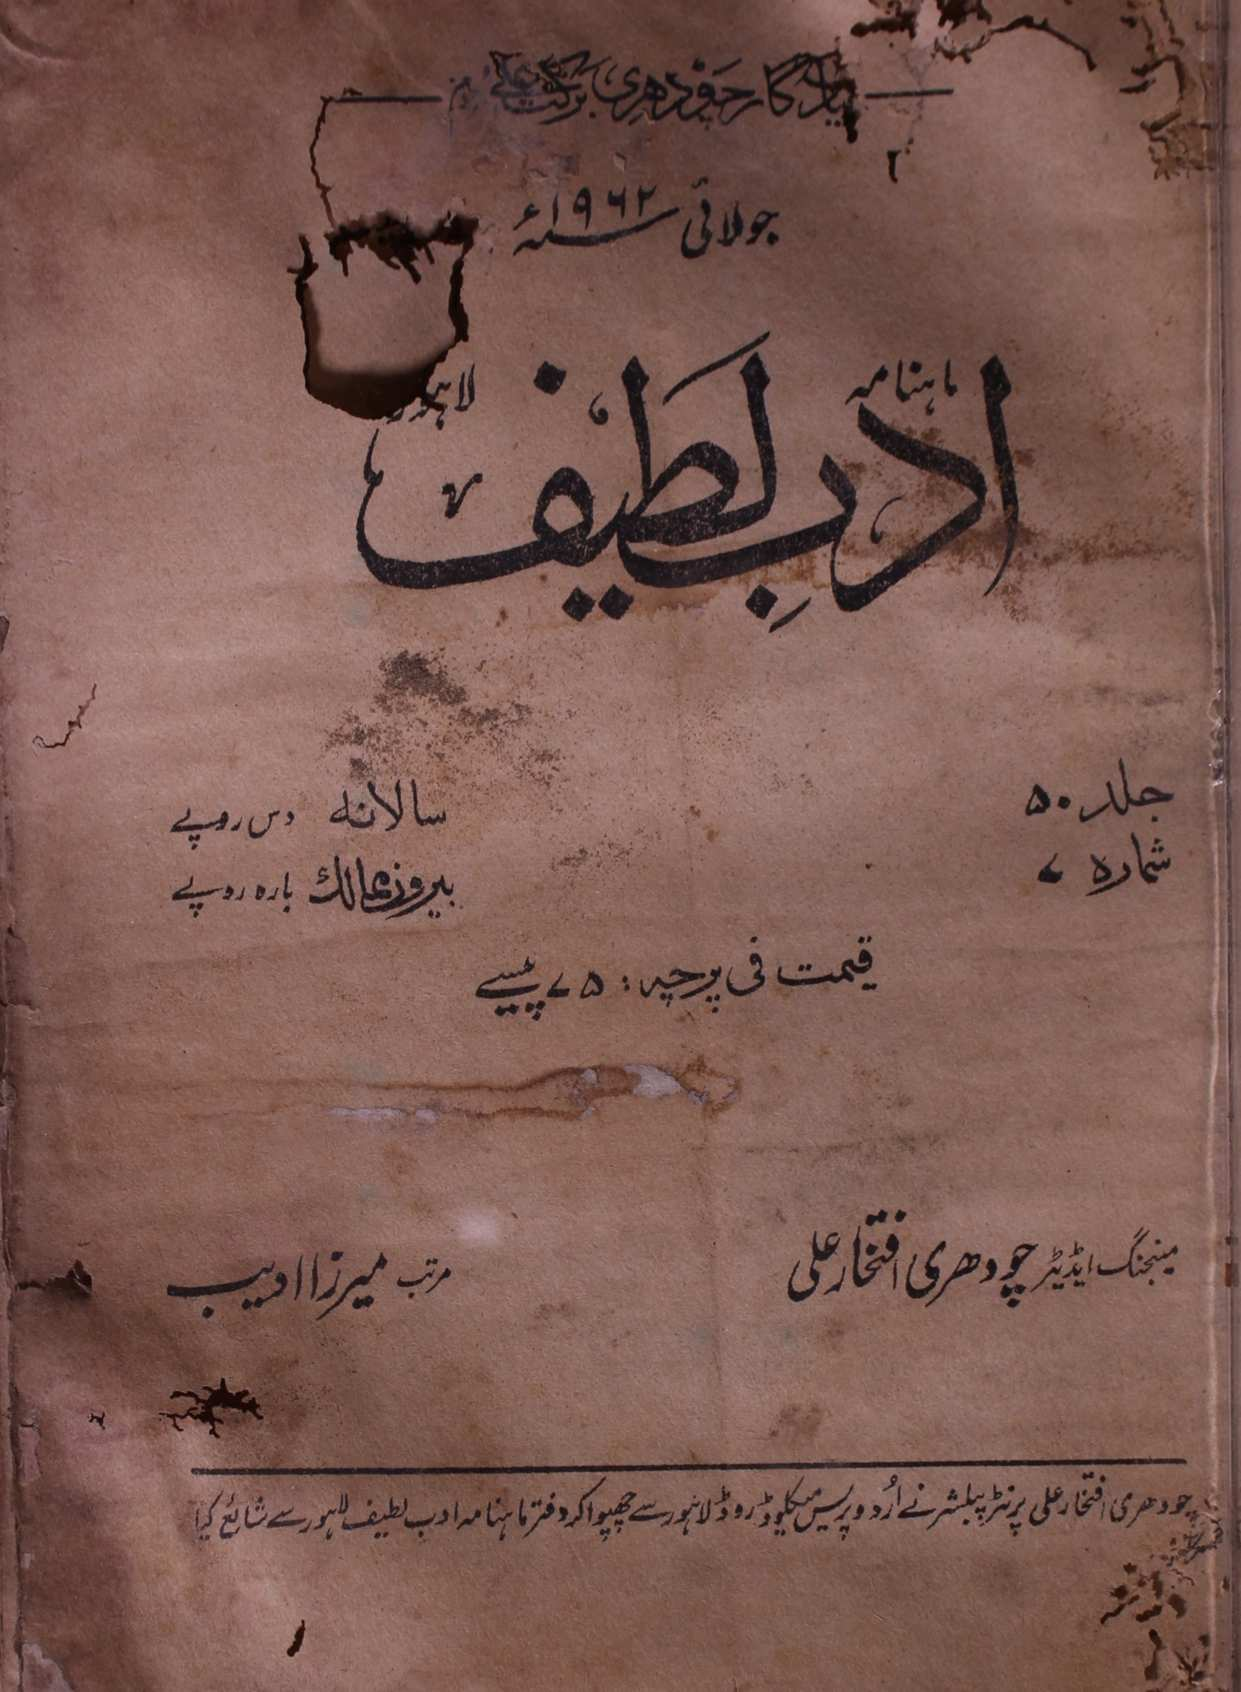 یادگار چودھری برکت علی مرحوم
جولائی ۱۹۶۲ء
ماہنامہ ادبِ لطیف لاہور
جلد ۵۰
شمارہ ۷
سالانہ دس روپے
بیرون ممالک بارہ روپے
قیمت فی پرچہ: ۷۵ پیسے
مینجنگ ایڈیٹر چودھری افتخار علی
مرتب میرزا ادیب
چودھری افتخار علی پرنٹر پبلشر نے اُردو پریس میکلیوڈ روڈ لاہور سے چھپوا کر دفتر ماہنامہ ادب لطیف لاہور سے شائع کیا